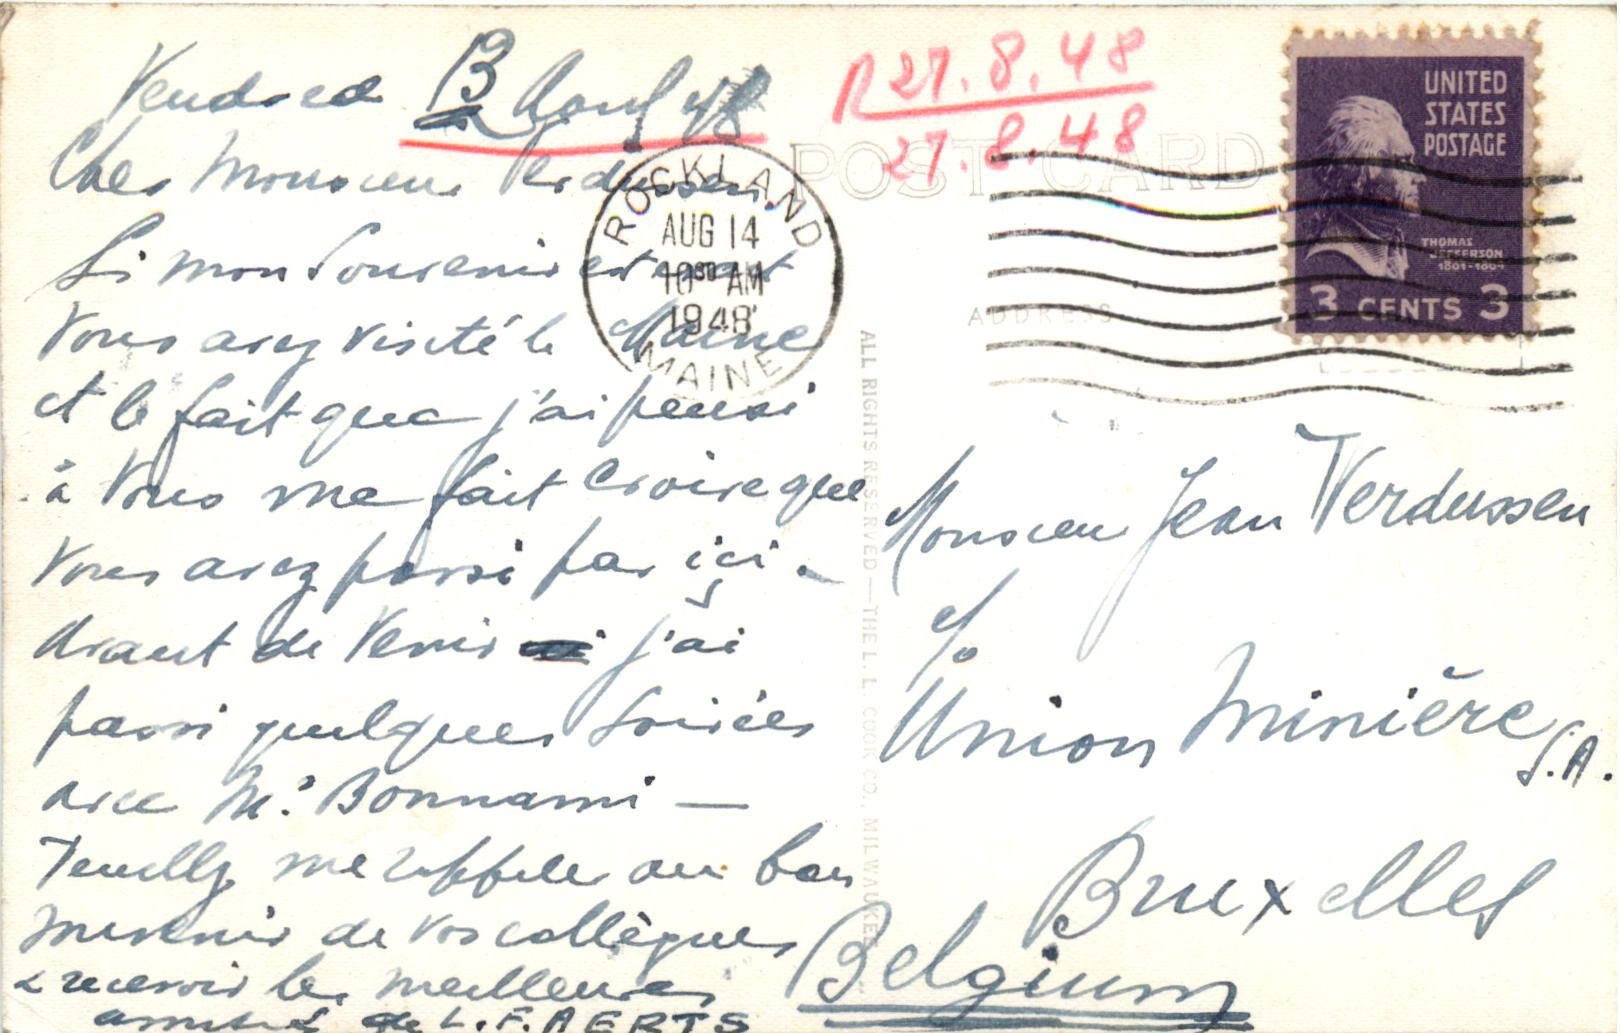 Vendredi 13 Aout 48
Cher Monsieur Verdussen,
Si mon Souvenir est exact
Vous avez visité le Maine
et le fait que j'ai pensé
à Vous me fait croire que
Vous avez passé par ici.
Avant de Venir j'ai
passé quelques Soirées
avec Mr Bonnami —
Veuillez me rappeler au bon
souvenir de vos collègues
& recevoir les meilleures
amitiés de L. F. AERTS
R 27.8.48
27.8.48
POST CARD
ADDRESS
ROCKLAND
AUG 14
10 30 AM
1948
MAINE
UNITED
STATES
POSTAGE
THOMAS
JEFFERSON
1801-1809
3 CENTS 3
ALL RIGHTS RESERVED—THE L. L. COOK CO., MILWAUKEE
Monsieur Jean Verdussen
c/o
Union Minière S.A.
Bruxelles
Belgium